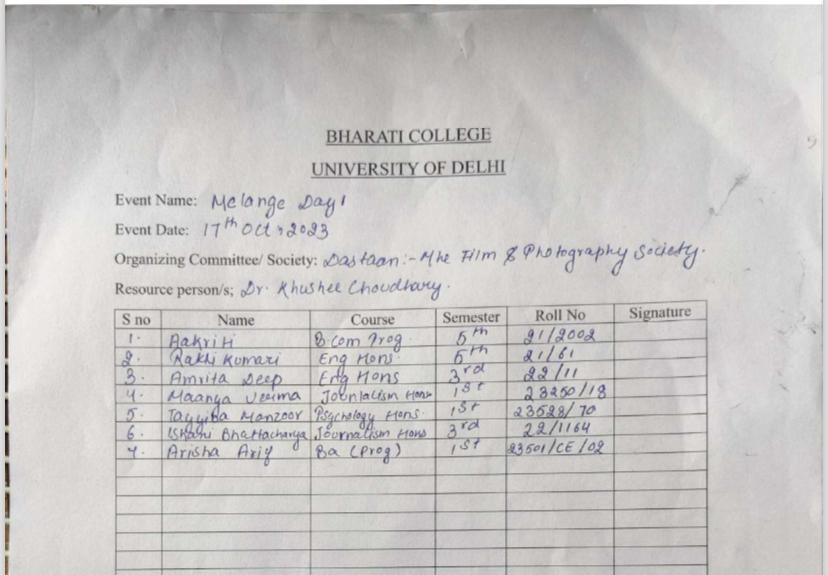 BHARATI COLLEGE
UNIVERSITY OF DELHI
Event Name: Melange Day 1
Event Date: 17th Oct, 2023
Organizing Committee/ Society: Dastaan:- The Film & Photography Society.
Resource person/s; Dr. Khushee Choudhary.
S no Name Course Semester Roll No Signature
1. Aakriti B.com Prog 5th 21/2002
2. Rakhi Kumari Eng Hons 5th 21/61
3. Amrita Deep Eng Hons 3rd 22/11
4. Maanya Verma Journlaism Hons 1st 23250/18
5. Tayyiba Manzoor Psychology Hons. 1st 23528/70
6. Ishani Bhattacharya Journalism Hons 3rd 22/1164
7. Arisha Arif Ba (Prog) 1st 23501/CE/02